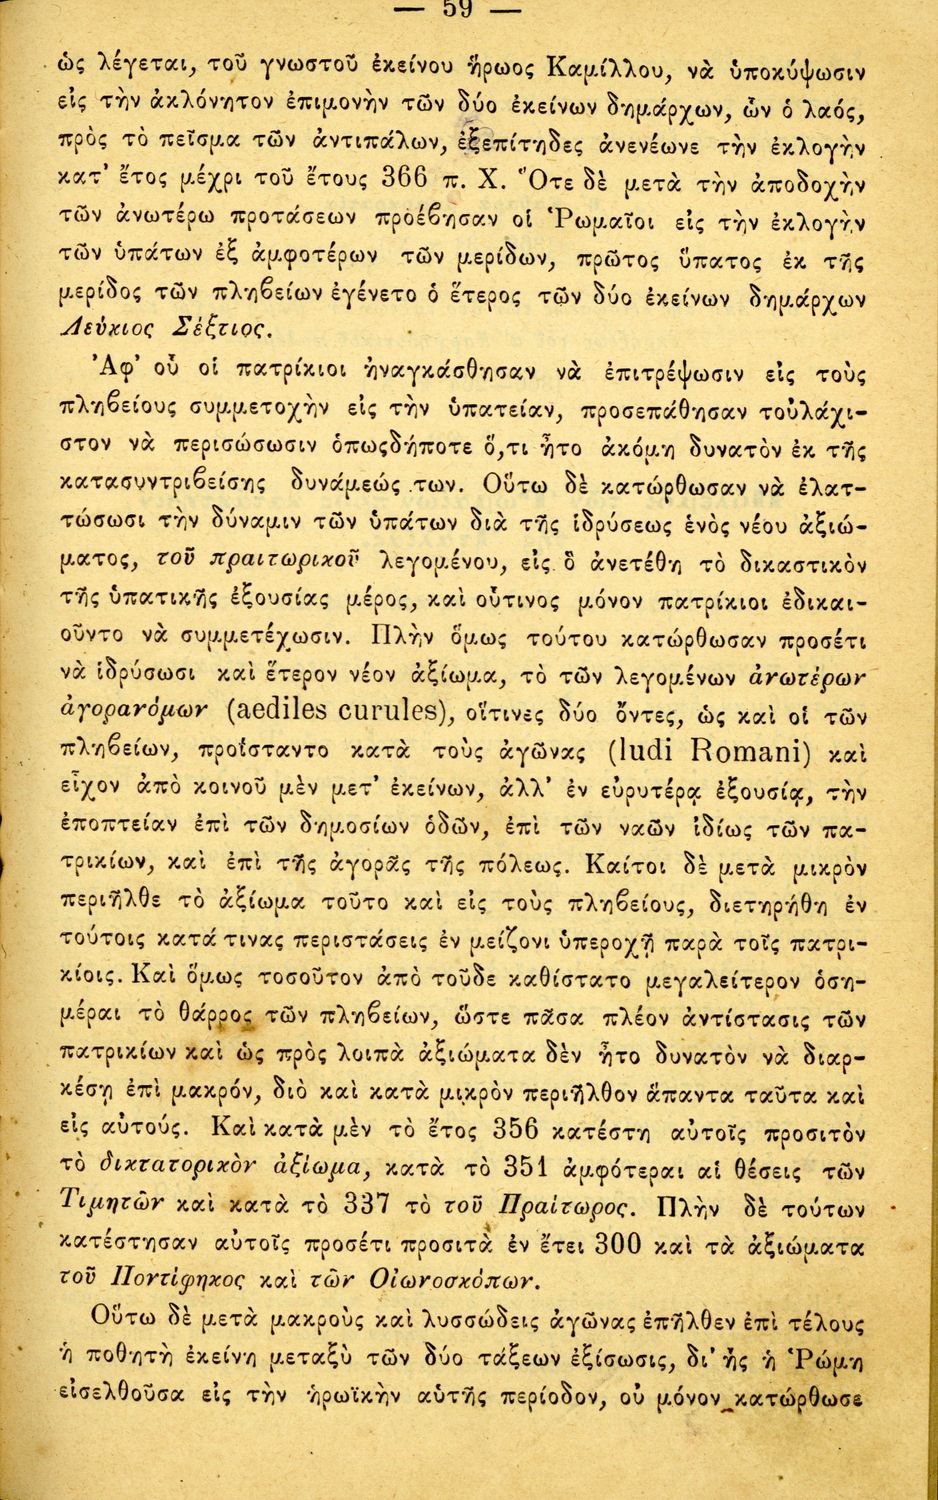 — 59 —
ὡς λέγεται, τοῦ γνωστοῦ ἐκείνου ἥρωος Καμίλλου, νὰ ὑποκύψωσιν
εἰς τὴν ἀκλόνητον ἐπιμονὴν τῶν δύο ἐκείνων δημάρχων, ὧν ὁ λαός,
πρὸς τὸ πεῖσμα τῶν ἀντιπάλων, ἐξεπίτηδες ἀνενέωνε τὴν ἐκλογὴν
κατ' ἔτος μέχρι τοῦ ἔτους 366 π. Χ. Ὅτε δὲ μετὰ τὴν ἀποδοχὴν
τῶν ἀνωτέρω προτάσεων προέβησαν οἱ Ῥωμαῖοι εἰς τὴν ἐκλογὴν
τῶν ὑπάτων ἐξ ἀμφοτέρων τῶν μερίδων, πρῶτος ὕπατος ἐκ τῆς
μερίδος τῶν πληβείων ἐγένετο ὁ ἕτερος τῶν δύο ἐκείνων δημάρχων
Λεύκιος Σέξτιος.
Ἀφ' οὗ οἱ πατρίκιοι ἠναγκάσθησαν νὰ ἐπιτρέψωσιν εἰς τοὺς
πληβείους συμμετοχὴν εἰς τὴν ὑπατείαν, προσεπάθησαν τοὐλάχι-
στον νὰ περισώσωσιν ὁπωςδήποτε ὅ,τι ἦτο ἀκόμη δυνατὸν ἐκ τῆς
κατασυντριβείσης δυνάμεώς των. Οὕτω δὲ κατώρθωσαν νὰ ἐλατ-
τώσωσι τὴν δύναμιν τῶν ὑπάτων διὰ τῆς ἱδρύσεως ἑνὸς νέου ἀξιώ-
ματος, τοῦ πραιτωρικοῦ λεγομένου, εἰς ὃ ἀνετέθη τὸ δικαστικὸν
τῆς ὑπατικῆς ἐξουσίας μέρος, καὶ οὗτινος μόνον πατρίκιοι ἐδικαι-
οῦντο νὰ συμμετέχωσιν. Πλὴν ὅμως τούτου κατώρθωσαν προσέτι
νὰ ἱδρύσωσι καὶ ἕτερον νέον ἀξίωμα, τὸ τῶν λεγομένων ἀνωτέρων
ἀγορανόμων (aediles curules), οἵτινες δύο ὄντες, ὡς καὶ οἱ τῶν
πληβείων, προΐσταντο κατὰ τοὺς ἀγῶνας (ludi Romani) καὶ
εἶχον ἀπὸ κοινοῦ μὲν μετ' ἐκείνων, ἀλλ' ἐν εὐρυτέρᾳ ἐξουσίᾳ, τὴν
ἐποπτείαν ἐπὶ τῶν δημοσίων ὁδῶν, ἐπὶ τῶν ναῶν ἰδίως τῶν πα-
τρικίων, καὶ ἐπὶ τῆς ἀγορᾶς τῆς πόλεως. Καίτοι δὲ μετὰ μικρὸν
περιῆλθε τὸ ἀξίωμα τοῦτο καὶ εἰς τοὺς πληβείους, διετηρήθη ἐν
τούτοις κατά τινας περιστάσεις ἐν μείζονι ὑπεροχῇ παρὰ τοῖς πατρι-
κίοις. Καὶ ὅμως τοσοῦτον ἀπὸ τοῦδε καθίστατο μεγαλείτερον ὁση-
μέραι τὸ θάρρος τῶν πληβείων, ὥστε πᾶσα πλέον ἀντίστασις τῶν
πατρικίων καὶ ὡς πρὸς λοιπὰ ἀξιώματα δὲν ἦτο δυνατὸν νὰ διαρ-
κέσῃ ἐπὶ μακρόν, διὸ καὶ κατὰ μικρὸν περιῆλθον ἅπαντα ταῦτα καὶ
εἰς αὐτούς. Καὶ κατὰ μὲν τὸ ἔτος 356 κατέστη αὐτοῖς προσιτὸν
τὸ δικτατορικὸν ἀξίωμα, κατὰ τὸ 351 ἀμφότεραι αἱ θέσεις τῶν
Τιμητῶν καὶ κατὰ τὸ 337 τὸ τοῦ Πραίτωρος. Πλὴν δὲ τούτων
κατέστησαν αὐτοῖς προσέτι προσιτὰ ἐν ἔτει 300 καὶ τὰ ἀξιώματα
τοῦ Ποντίφηκος καὶ τῶν Οἰωνοσκόπων.
Οὕτω δὲ μετὰ μακροὺς καὶ λυσσώδεις ἀγῶνας ἐπῆλθεν ἐπὶ τέλους
ἡ ποθητὴ ἐκείνη μεταξὺ τῶν δύο τάξεων ἐξίσωσις, δι' ἧς ἡ Ῥώμη
εἰσελθοῦσα εἰς τὴν ἡρωϊκὴν αὑτῆς περίοδον, οὐ μόνον κατώρθωσε